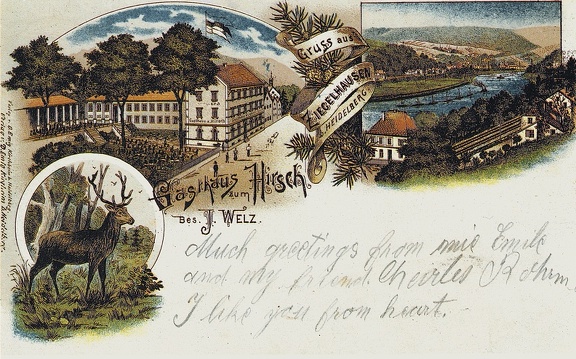 Gruss aus
ZIEGELHAUSEN
B. HEIDELBERG
Gasthaus zum Hirsch.
Bes. J. WELZ.
Much greetings from mie Emile
and my friend Charles Rohrm
I like you from heart.